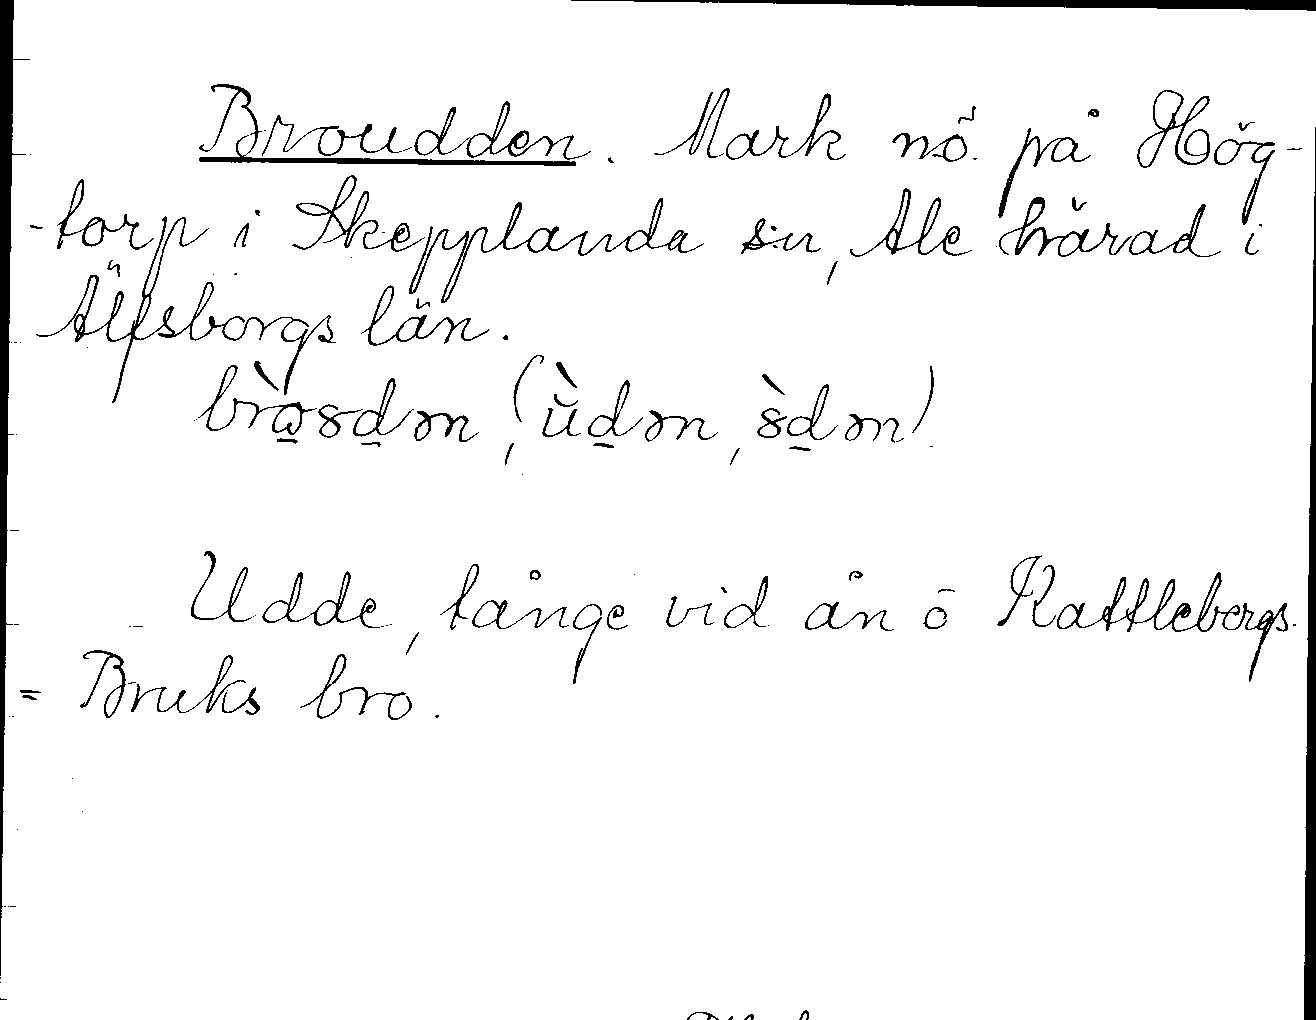 Broudden. Mark nö. på Hög-
-torp i Skepplanda s:n, Ale härad i
Älfsborgs län.
Udde, tånge vid ån ö Kattlebergs
= Bruks bro.